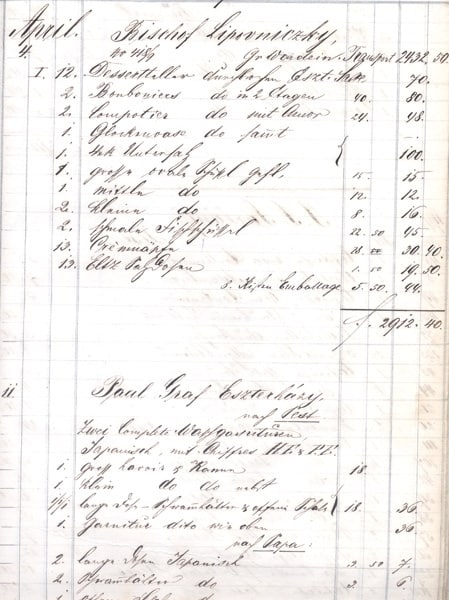 April. Bischof Lipovniczky,
4. Gr. Wardein. Transport 2432. 50.
I. 12. Dessertteller durchbrochen Eszt. 70.
2. Bonbonieres do in 2 Etagen 40. 80.
2. Compotier do mit Amor 24. 48.
1. Glockenvase do samt
1. 4ek Untersatz 100.
1. grosse ovale Schssl 15. 15.
1. mittle do 12. 12.
2. kleine do 8. 16.
2. schmale Fischschüssel 22. 50 45.
13. Crèmnäpfe 30. 40.
13. Dosen 1. 50 19. 50.
Kisten Emballage 5. 50. 44.
f. 2912. 40.
11. Paul Graf Eszterházy,
nach Pest
Zwei complete Waschgarnituren
Japanisch, mit Chiffres
1. gross Lavoir & Kanne 18.
1. klein do do nebst
lange & offene 18. 36.
1. Garnitur dito wie oben 36
nach Papa:
2. lange Dosen Japanisch 3. 50 7.
2. do 3. 6.
1.